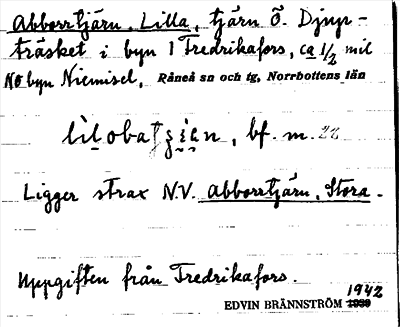 Abborrtjärn, Lilla, tjärn Ö. Djup-
träsket i byn 1 Fredrikafors, ca 1/2 mil
NO byn Niemisel, Råneå sn och tg, Norrbottens län
bf. m.
Ligger strax N.V. Abborrtjärn, Stora.
Uppgiften från Fredrikafors.
1942
EDVIN BRÄNNSTRÖM 1939